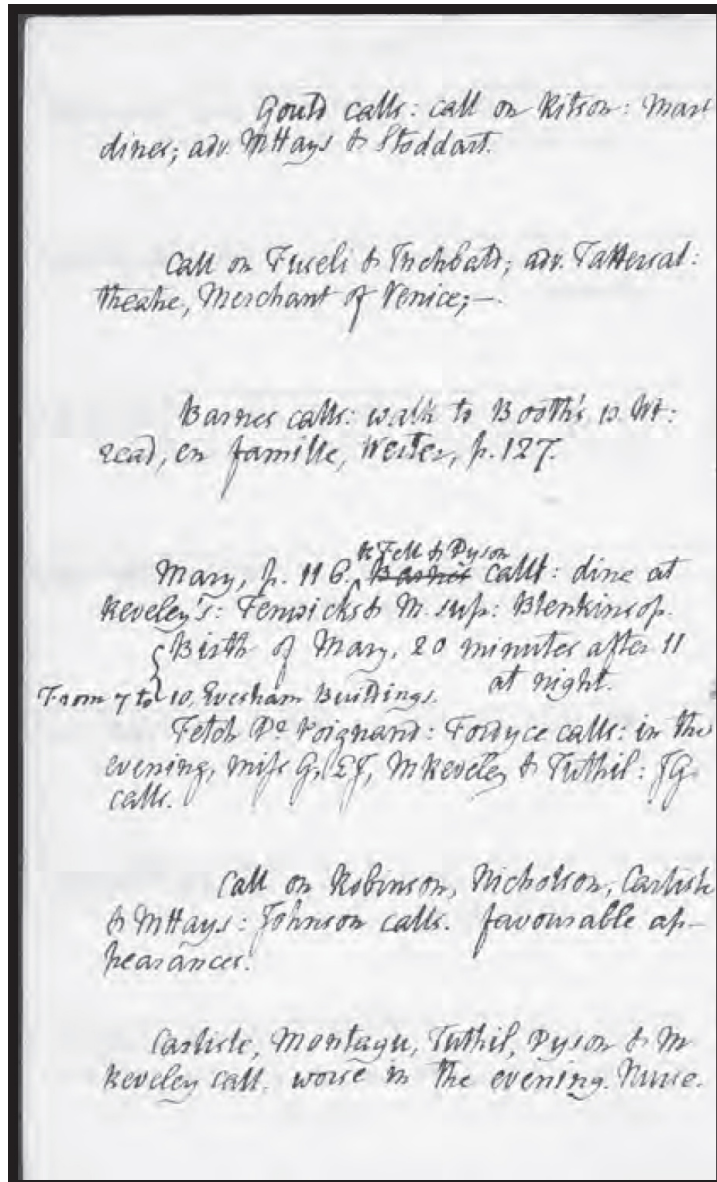 Gould calls: call on Ritson: Mary
dines; adv. M Hays & Stoddart.
Call on Fuseli & Inchbald; adv. Tattersal:
theatre, Merchant of Venice;—.
Barnes calls: walk to Booth's w. Wt:
read, en famille, Werter, p. 127.
& Fell & Dyson
Mary, p. 116. Barnes call: dine at
Reveley's: Fenwicks & M. sup: Blenkinsop.
Birth of Mary, 20 minutes after 11
at night.
From 7 to 10, Evesham Buildings.
Fetch Dr Poignand: Fordyce calls: in the
evening, miss G, EJ, M Reveley & Tuthil: JG
calls.
Call on Robinson, Nicholson, Carlisle
& M Hays: Johnson calls. favourable ap-
pearances.
Carlisle, Montagu, Tuthil, Dyson & M
Reveley call. worse in the evening. Nurse.